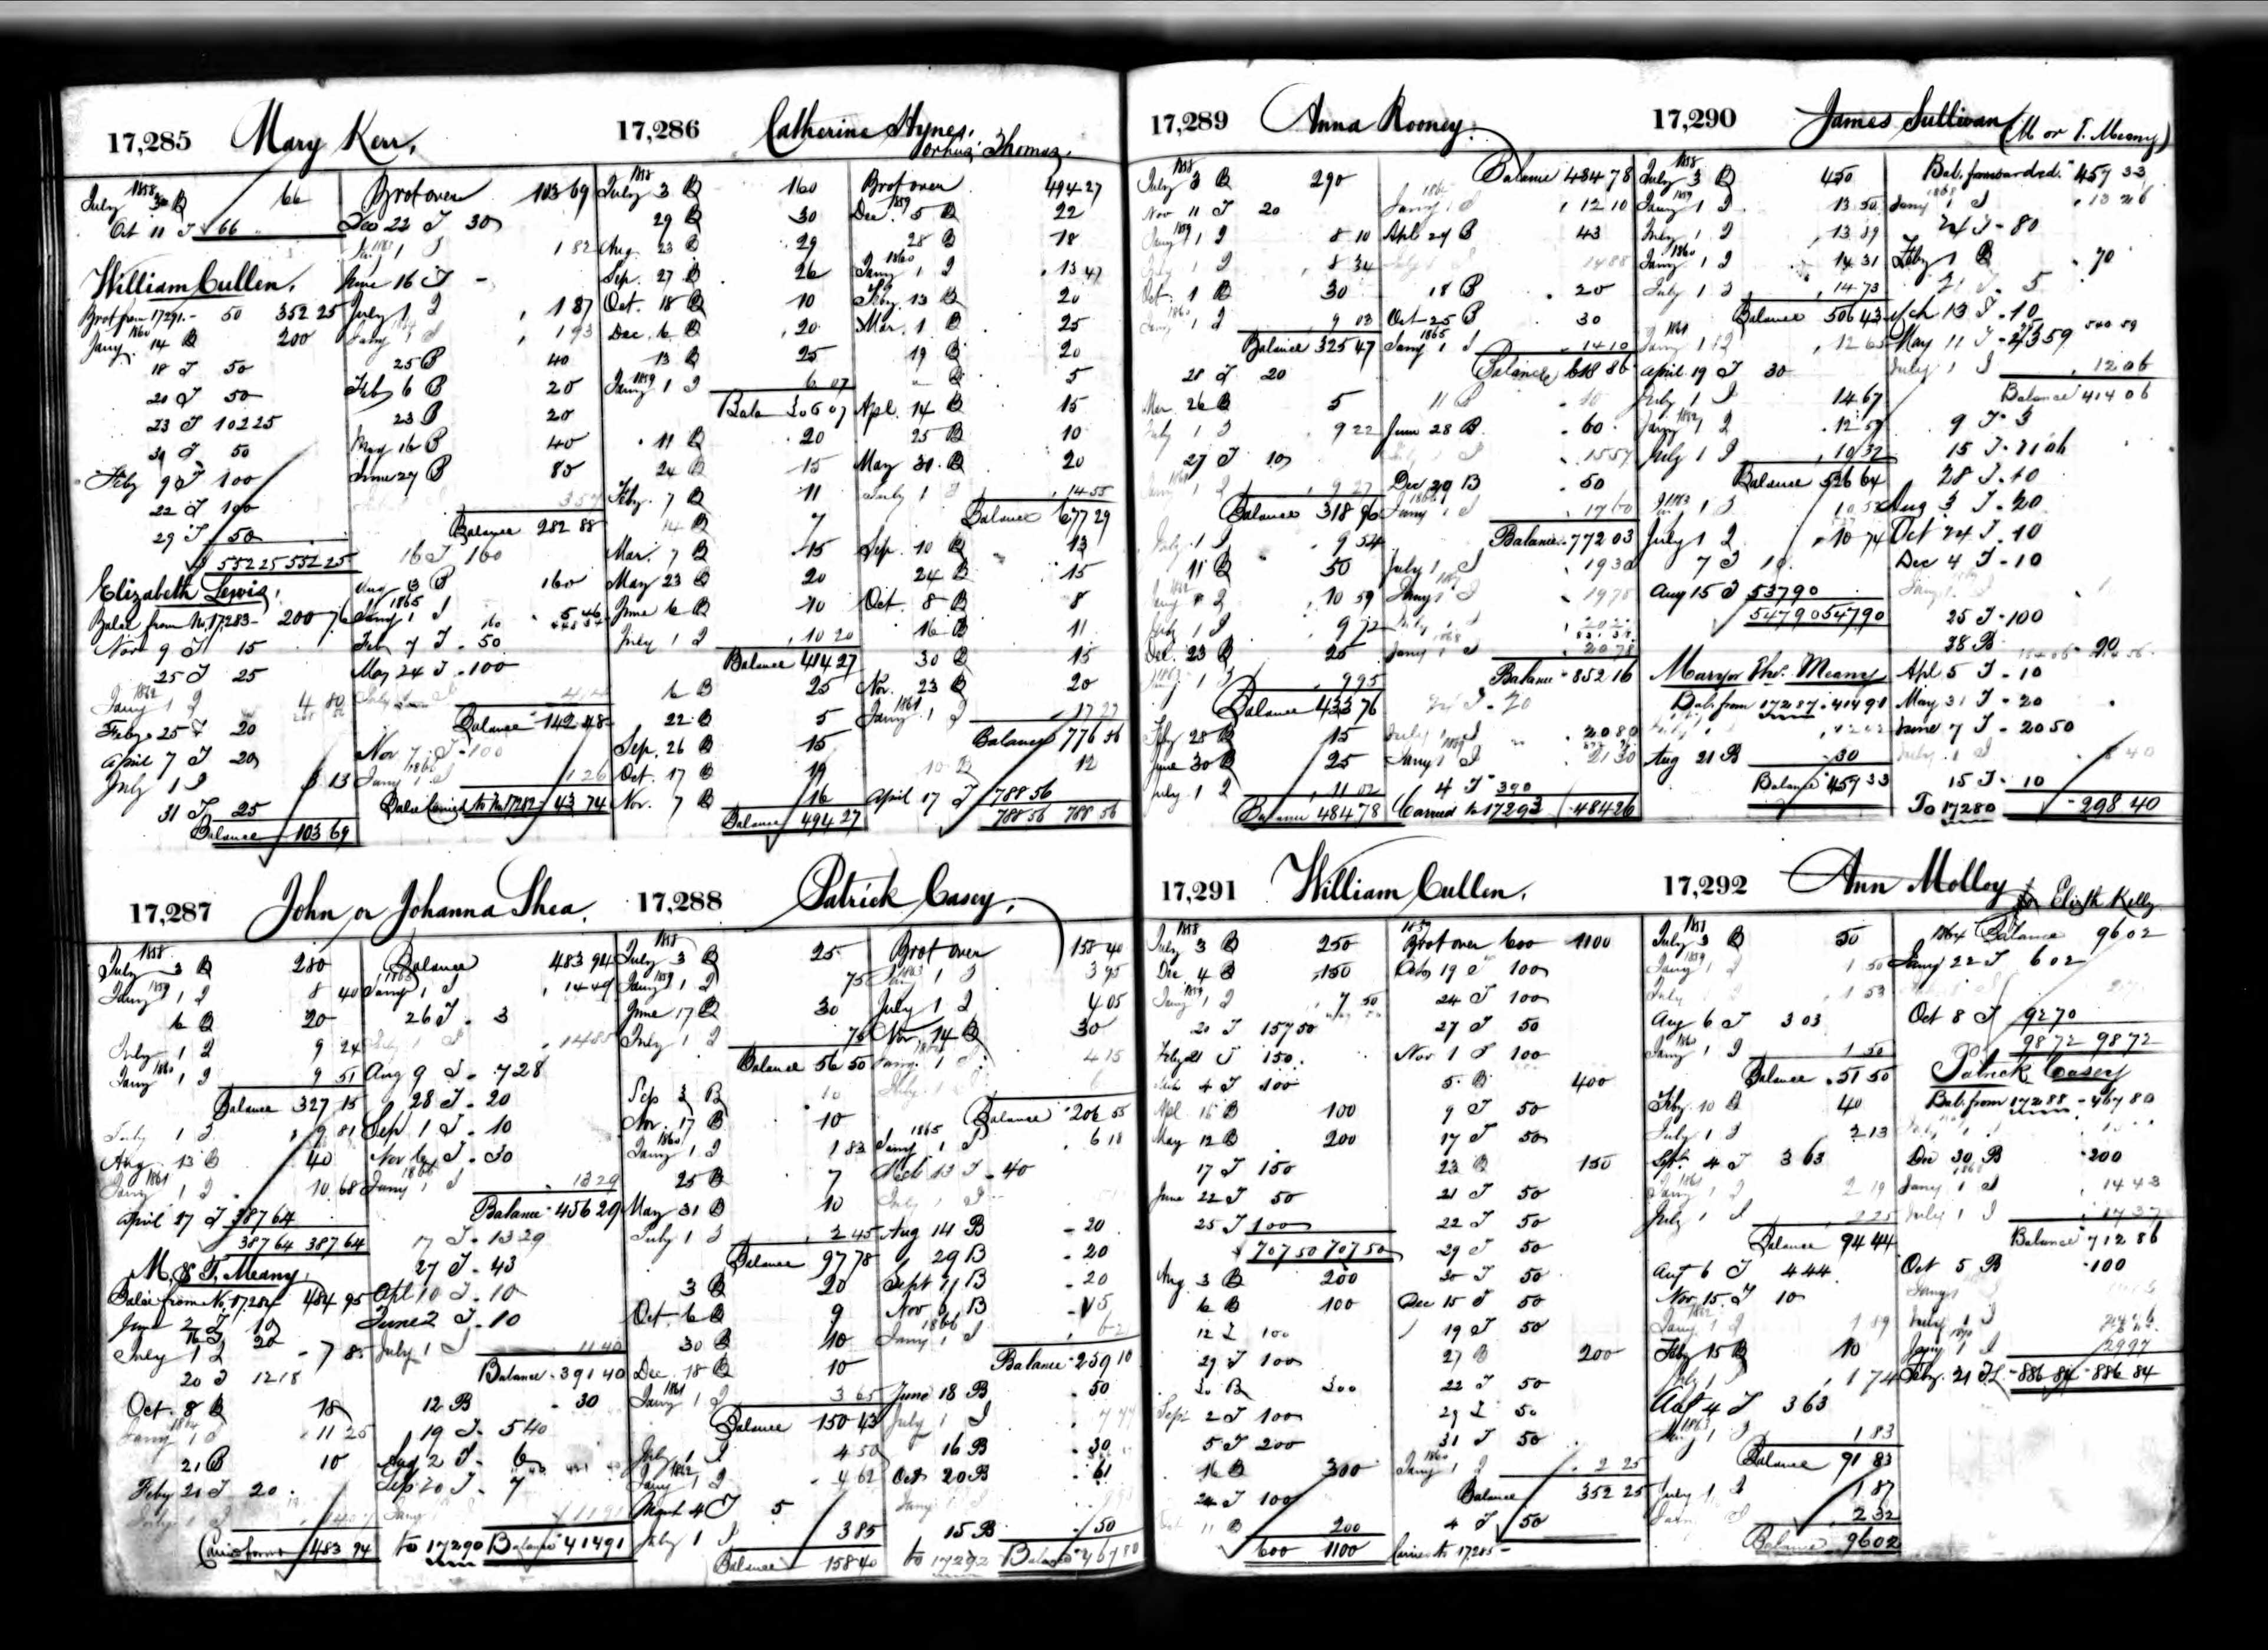 17,285 Mary Kerr.
1858
July 30 B 66
Oct 11 T 66
William Cullen.
Brot from 17291.- 50 352 25
1860
Jany. 14 B 200
18 T 50
20 T 50
23 T 102 25
30 T 50
Feby 9 T 100
22 T 100
29 T 50
552 25 552 25
Elizabeth Lewis.
Balce from No. 17,283- 200 76
Nov 9 T 15
25 T 25
1862
Jany 1 I 4 80
Feby. 25 T 20
April 7 T 20
July 1 I 3 13
31 T 25
Balance 103 69
Brot over 103 69
Dec 22 T 30
1 82
June 16 T -
July 1 I 1 87
Jany 1 I 1 93
25 B 40
Feb 6 B 20
23 B 20
May 16 B 40
June 27 B 80
3 57
Balance 282 88
16 T 160
Aug 3 B 160
1865
Jany 1 I 5 46
Feb 7 T 50
May 24 T 100
Balance 142 48
Nov 7 T 100
1866
Jany 1 I 1 26
Balce Carried to No 17282 43 74
17,286 Catherine Hynes.
or hus; Thomas.
1858
July 3 B 160
29 B 30
Aug. 23 B 29
Sep. 27 B 26
Oct. 18 B 10
Dec. 6 B 20
13 B 25
1859
Jany 1 I 6 07
Bala 306 07
11 B 20
24 B 15
Feby. 7 B 11
14 B 7
Mar. 7 B 15
May 23 B 20
June 6 B 10
July 1 I 10 20
Balance 414 27
6 B 25
22 B 5
Sep. 26 B 15
Oct. 17 B 19
Nov. 7 B 16
Balance 494 27
Brot over 494 27
1859
Dec. 5 B 22
28 B 18
1860
Jany 1 I 13 47
Feby. 13 B 20
Mar. 1 B 25
19 B 20
" B 5
Apl. 14 B 15
25 B 10
May 30 B 20
July 1 I 14 55
Balance 677 29
Sep. 10 B 13
24 B 15
Oct. 8 B 8
16 B 11
30 B 15
Nov. 23 B 20
1861
Jany. 1 I 17 27
Balance 776 56
10 B 12
April 17 T 788 56
788 56 788 56
17,287 John or Johanna Shea.
1858
July 3 B 280
1859
Jany 1 I 8 40
6 B 20
July 1 I 9 24
1860
Jany 1 I 9 51
Balance 327 15
July 1 I 9 81
Aug. 13 B 40
1861
Jany 1 I 10 68
April 27 T 387 64
387 64 387 64
M. & T. Meany.
Balce from No. 17,284 484 95
June 2 T 10
16 T 20
July 1 I 7 85
20 T 12 18
Oct. 8 B 18
1864
Jany 1 I 11 25
21 B 10
Feby 20 T 20
July 1 I 14 07
Carried forward 483 94
Balance 483 94
1865
Jany 1 I 14 49
26 T 3
July 1 I 14 85
Aug 9 T 7 28
28 T 20
Sep 1 T 10
Nov 6 T 30
1866
Jany 1 I 13 29
Balance 456 29
17 T 13 29
27 T 43
Apl 10 T 10
June 2 T 10
July 1 I 11 40
Balance 391 40
12 B 30
19 T 5 40
Aug 2 T 6
Sep 20 T 7
11 91
to 17290 Balance 414 91
17,288 Patrick Casey.
1858
July 3 B 25
1859
Jany 1 I 75
June 17 B 30
July 1 I 75
Balance 56 50
Sep 3 B 10
Nov. 17 B 10
1860
Jany 1 I 1 83
25 B 7
May 31 B 10
July 1 I 2 45
Balance 97 78
3 B 20
Oct. 6 B 9
30 B 10
Dec. 18 B 10
1861
Jany 1 I 3 65
Balance 150 43
July 1 I 4 50
1862
Jany 1 I 4 62
4 T 5
July 1 I 3 85
Balance 158 40
Brot over 158 40
1863
Jany 1 I 3 95
July 1 I 4 05
Nov. 14 B 30
Jany 1 I 4 15
Balance 206 55
1865
Jany 1 I 6 18
13 T 40
July 1 I
Aug 14 B 20
29 B 20
Sept 21 B 20
Nov 6 B
1866
Jany 1 I
Balance 259 10
June 18 B 50
July 1 I
16 B 30
Oct 20 B 61
Jany 1 I
15 B 50
to 17292 Balance 467 80
17,289 Anna Rooney.
1858
July 3 B 290
Nov 11 T 20
1859
Jany 1 I 8 10
July 1 I 8 34
Oct. 1 B 30
1860
Jany 1 I 9 03
Balance 325 47
28 T 20
Mar. 26 B 5
July 1 I 9 22
27 T 10
1861
Jany 1 I 9 27
Balance 318 96
July 1 I 9 54
11 B 50
1862
Jany 1 I 10 59
July 1 I 9 72
Dec. 23 B 25
1863
Jany 1 I 9 95
Balance 433 76
Feby 28 B 15
June 30 B 25
July 1 I 11 02
Balance 484 78
Balance 484 78
1864
Jany 1 I 12 10
Apl 29 B 43
July 1 I 14 88
18 B 20
Oct 25 B 30
1865
Jany 1 I 14 10
Balance 618 86
11 B
June 28 B 60
15 57
Dec 29 B 50
1866
Jany 1 I 17 60
Balance 772 03
July 1 I 19 30
1867
Jany 1 I 19 78
July 1 I
1868
Jany 1 I 20 78
Balance 852 16
T 70
July 1 I 20 80
1869
Jany 1 I 21 30
4 T 390
Carried to 17293 484 26
17,290 James Sullivan (M or T. Meany)
1858
July 3 B 450
1859
Jany 1 I 13 50
July 1 I 13 89
1860
Jany 1 I 14 31
July 1 I 14 73
Balance 506 43
1861
Jany 1 I 12 65
April 19 T 30
July 1 I 14 67
1862
Jany 1 I 12 57
July 1 I 10 32
Balance 526 64
1863
Jany 1 I 10 52
July 1 I 10 74
7 T 10
Aug 15 T 537 90
547 90 547 90
Mary or Thos. Meany
Bal. from 17287. 414 91
July 1 I
Aug 21 B 30
Balance 457 33
Bal. forwarded. 457 33
1868
Jany 1 I 13 26
24 T 80
Feby 1 B 70
21 T 5
Mch 13 T 10
May 11 T 23 59
July 1 I 12 06
Balance 414 06
9 T 3
15 T 21 06
28 T 40
Aug 3 T 20
Oct 24 T 10
Dec 4 T 10
Jany 1 I
25 T 100
28 B 20
Apl 5 T 10
May 31 T 20
June 7 T 20 50
July 1 I 8 40
15 T 10
To 17280 298 40
17,291 William Cullen.
1858
July 3 B 250
Dec 4 B 150
1859
Jany 1 I 7 50
20 T 157 50
Feby 21 T 150
4 T 100
Apl. 15 B 100
May 12 B 200
17 T 150
June 22 T 50
25 T 100
707 50 707 50
Aug. 3 B 200
6 B 100
12 T 100
29 T 100
30 B 300
Sept 2 T 100
5 T 200
16 B 300
24 T 100
11 B 200
600 1100
1859
Brot over 600 1100
Octo 19 T 100
24 T 100
27 T 50
Nov 1 T 100
5 B 400
9 T 50
17 T 50
23 B 150
21 T 50
22 T 50
29 T 50
30 T 50
Dec 15 T 50
19 T 50
27 B 200
22 T 50
29 T 50
31 T 50
1860
Jany 1 I 2 25
Balance 352 25
4 T 50
Carried to 17285-
17,292 Ann Molloy
Elizth Kelly
1858
July 3 B 50
1859
Jany 1 I 1 50
July 1 53
Aug 6 T 3 03
1860
Jany 1 I 1 50
Balance 51 50
Feby. 10 B 40
July 1 I 2 13
Sept. 4 T 3 63
1861
Jany 1 I 2 19
July 1 I 2 25
Balance 94 44
Aug 6 T 4 44
Nov. 15 T 10
1862
Jany 1 I 1 89
Feby 15 B 10
July 1 I 1 74
Aug 4 T 3 63
1863
Jany 1 I 1 83
Balance 91 83
July 1 I 1 87
Jany 2 32
Balance 96 02
1864 Balance 96 02
Jany 22 T 6 02
Oct 8 T 92 70
98 72 98 72
Patrick Casey
Bal. from 17288 - 467 80
Dec 30 B 200
1868
Jany 1 I 14 43
July 1 I 17 37
Balance 712 86
Oct 5 B 100
Jany
July 1 I
1870
Jany 1 I 29 97
Feby. 21 T 886 84 886 84